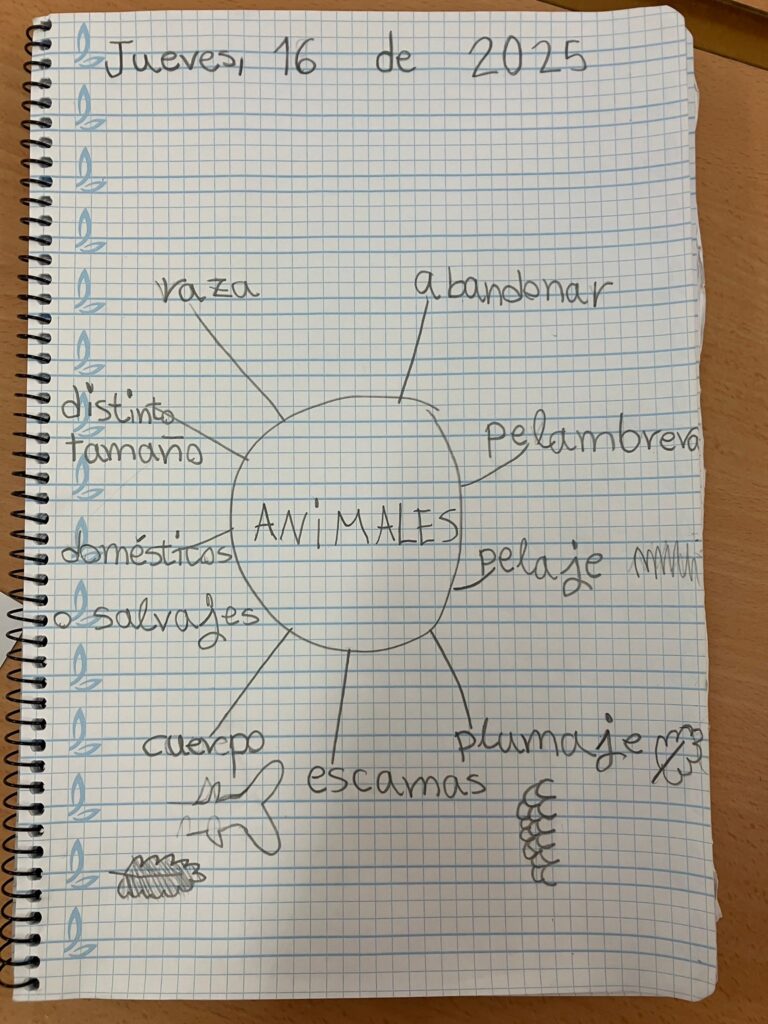 Jueves, 16 de 2025
raza
abandonar
distinto
tamaño
pelambrera
ANiMALES
domésticos
o salvajes
pelaje
cuerpo
escamas
plumaje